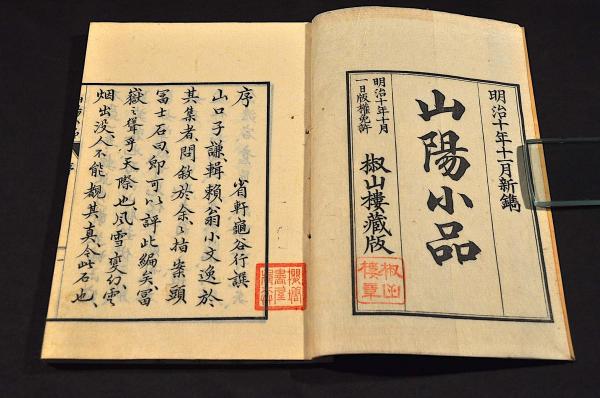 明治十年十一月新鐫
山陽小品
明治十年十月
一日版權免許
椒山樓藏版
椒山
樓章
序
省軒龜谷行譔
山口子謙輯賴翁小文逸於
其集者問敘於余〻指案頭
冨士石曰卽可以評此編矣冨
嶽之聳乎天際也風雪變幻雲
烟出没人不能覩其真今此石也